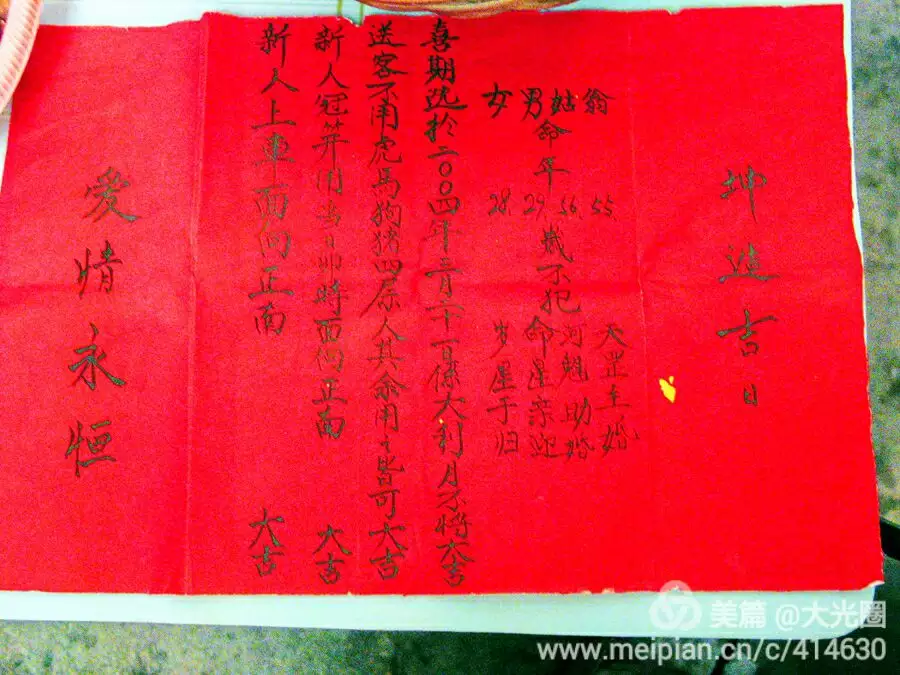 坤造吉日
翁 55. 天罡主婚
姑 56. 河魁助婚
男命年 29. 岁不犯命星亲迎
女 28. 岁星于归
喜期选於二00四年二月二十一日係大利月不将大吉
送客不用虎馬狗猪四属人其余用之皆可大吉
新人冠笄用当日卯時面向正南 大吉
新人上車面向正南 大吉
愛情永恒
美篇 @大光圈
www.meipian.cn/c/414630